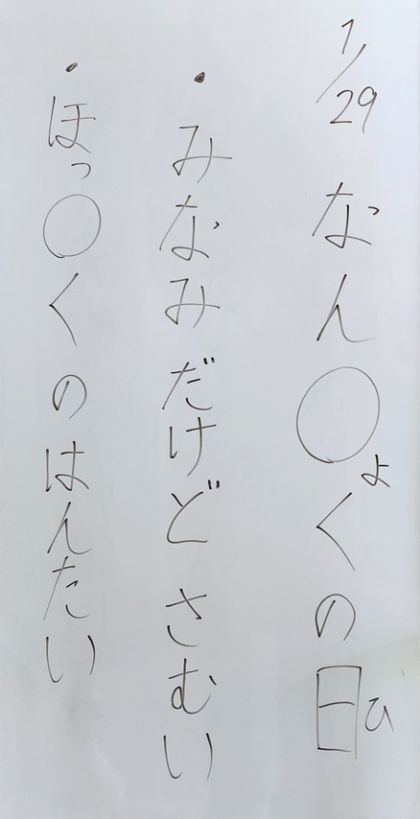 1/29 なん〇ょくの日ひ
・みなみだけど さむい
・ほっ〇くのはんたい